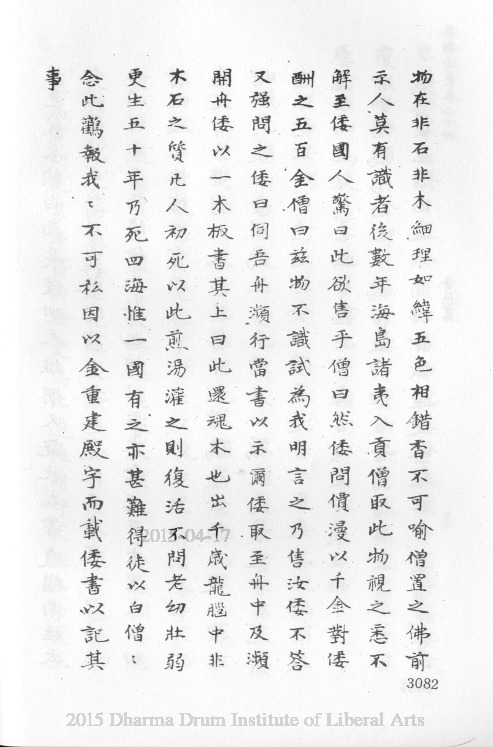 物在非石非木細理如緯五色相錯香不可喻僧置之佛前
示人莫有識者後數年海島諸夷入貢僧取此物視之悉不
解至倭國人驚曰此欲售乎僧曰然倭問價漫以千金對倭
酬之五百金僧曰茲物不識試為我明言之乃售汝倭不答
又強問之倭曰伺吾舟瀕行當書以示爾倭取至舟中及瀕
開舟倭以一木板書其上曰此還魂木也出千歲龍腦中非
木石之質凡人初死以此煎湯灌之則復活不問老幼壯弱
更生五十年乃死四海惟一國有之亦甚難得徒以白僧〻
念此鸛報我〻不可私因以金重建殿宇而載倭書以記其
事
3082
2015-04-17
2015 Dharma Drum Institute of Liberal Arts